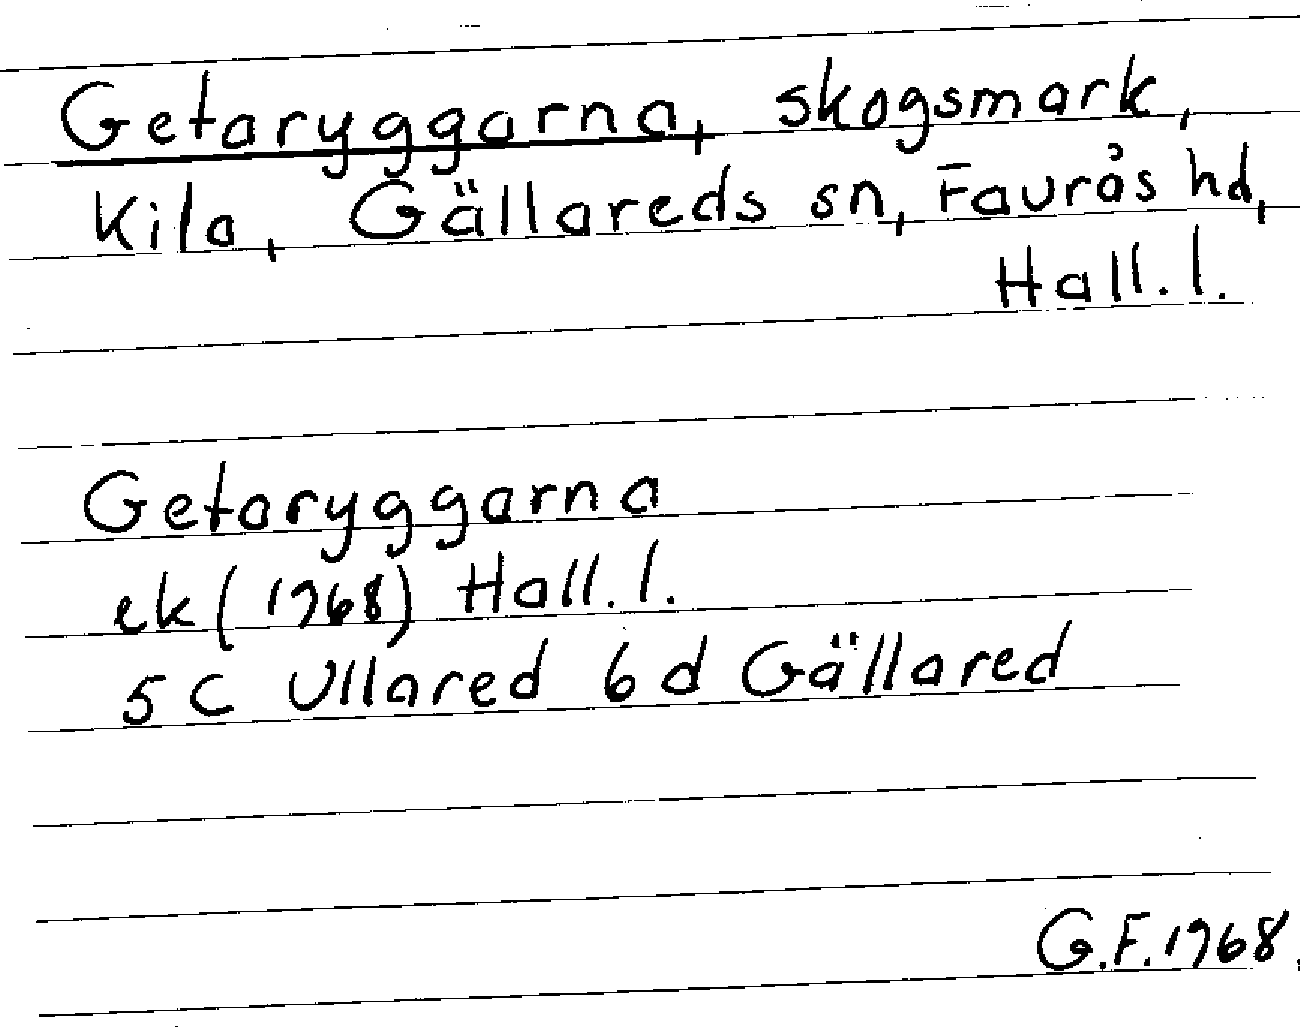 Getaryggarna, skogsmark,
Kila, Gällareds sn, Faurås hd,
Hall. l.
Getaryggarna
ek (1968) Hall. l.
5 C Ullared 6 d Gällared
G.F. 1968.